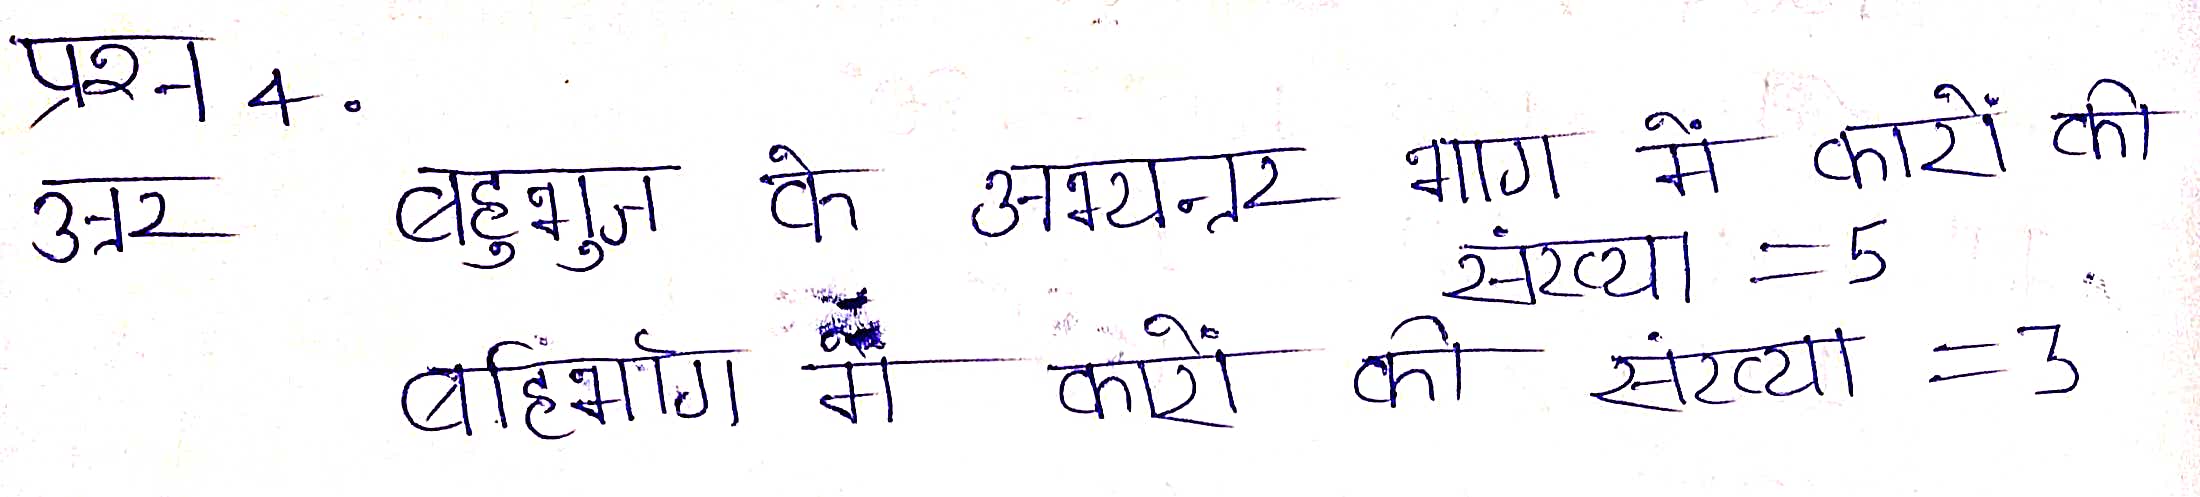 प्रश्न 4.
उत्तर बहुभुज के अभ्यन्तर भाग में कारों की
संख्या = 5
बहिर्भाग में कारों की संख्या = 3